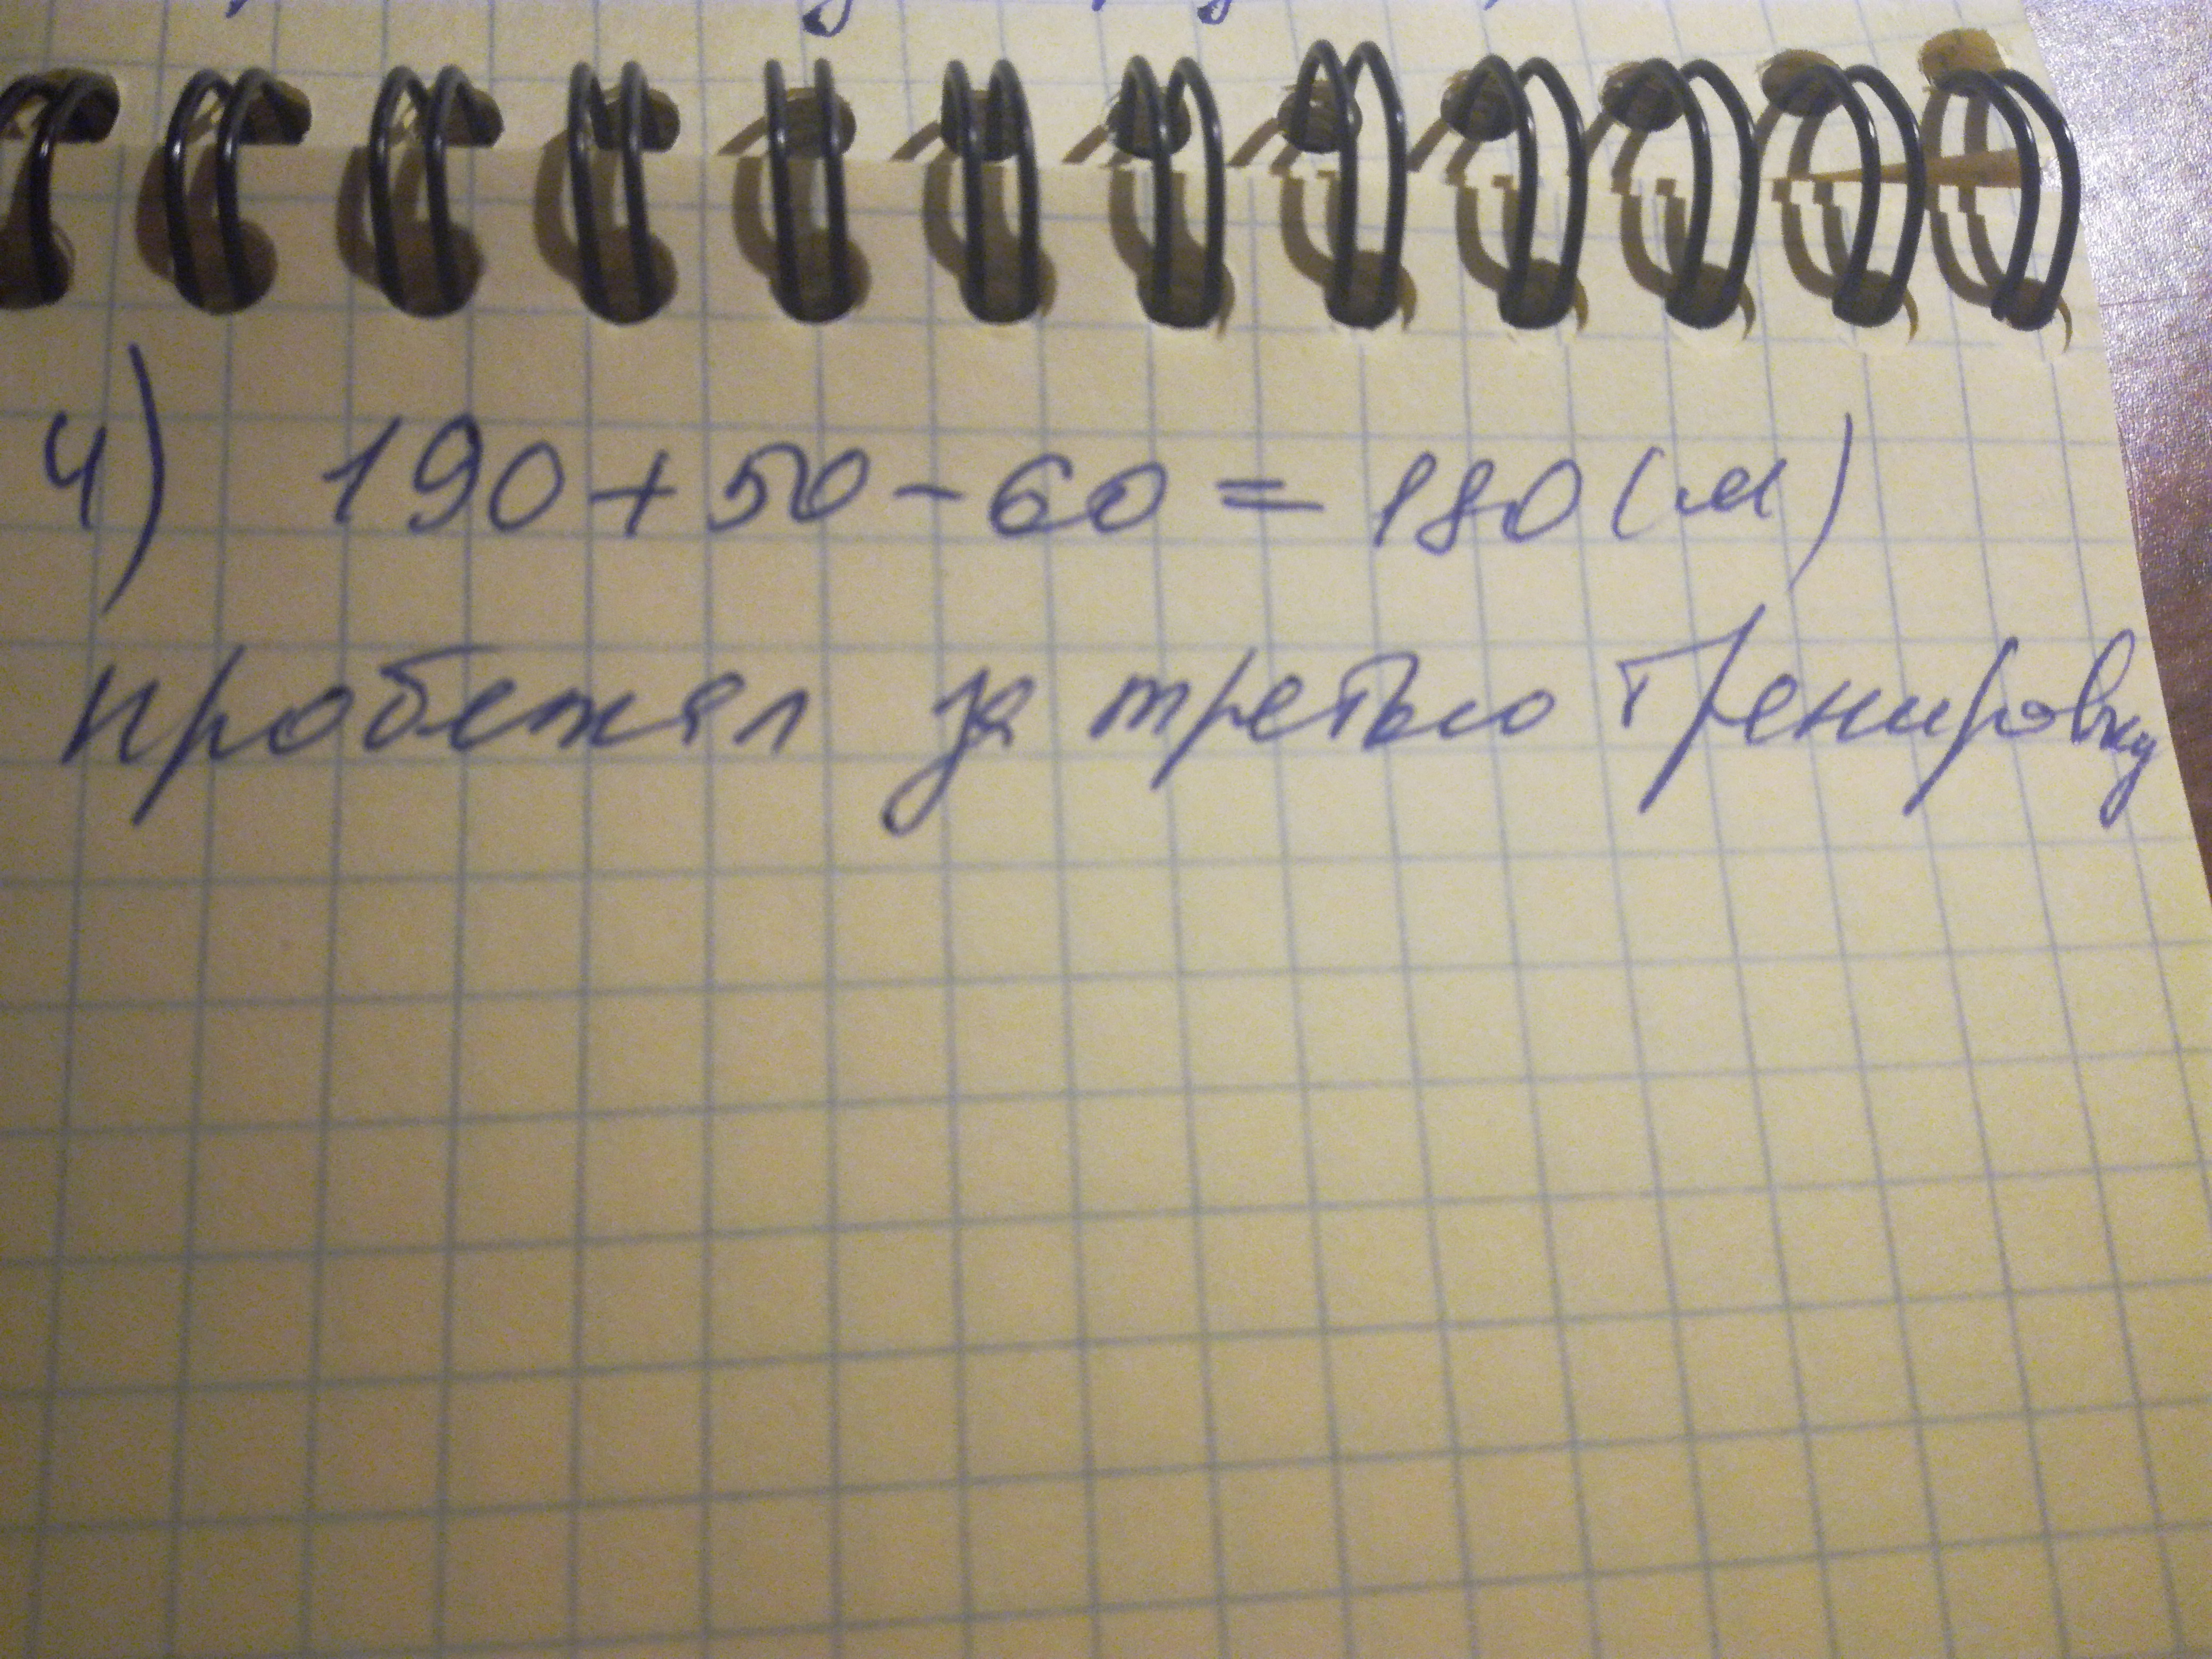 4) 190 + 50 - 60 = 180 (м)
пробежал за третью тренировку